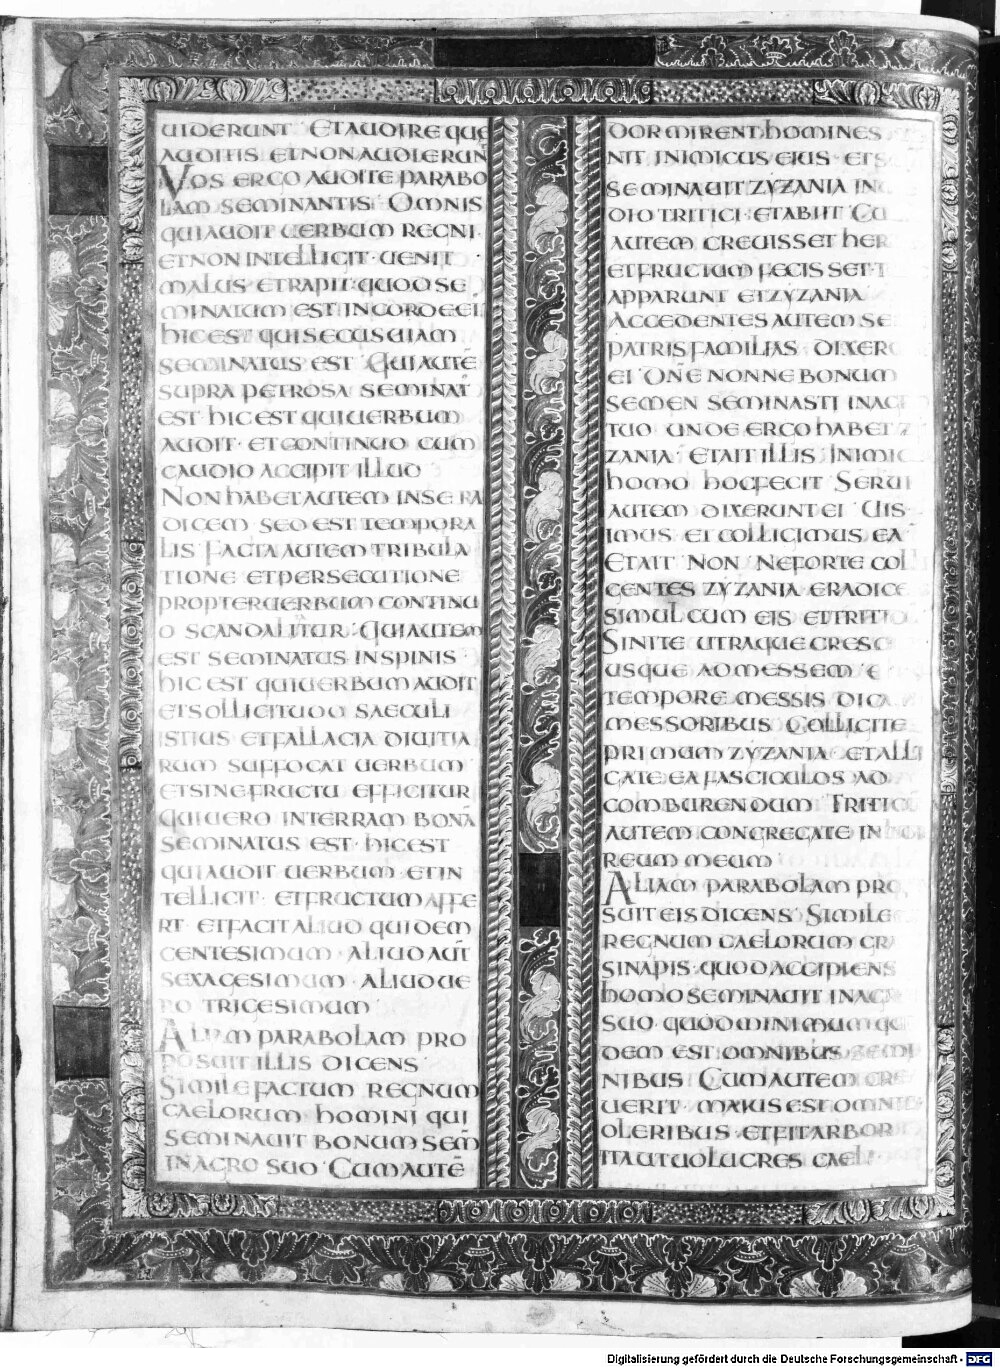 UIDERUNT · ET AUDIRE QUE
AUDITIS ET NON AUDIERUN̄
VOS ERGO AUDITE PARABO
LAM SEMINANTIS · OMNIS
QUI AUDIT UERBUM REGNI ·
ET NON INTELLIGIT · UENIT
MALUS ET RAPIT · QUOD SE
MINATUM EST IN CORDE EI
HIC EST QUI SECUS UIAM
SEMINATUS EST · QUI AUTĒ
SUPRA PETROSA SEMINAT̄
EST · HIC EST QUI UERBUM
AUDIT · ET CONTINUO CUM
GAUDIO ACCIPIT ILLUD
NON HABET AUTEM IN SE RA
DICEM · SED EST TEMPORA
LIS FACTA AUTEM TRIBULA
TIONE ET PERSECUTIONE
PROPTER UERBUM CONTINU
O SCANDALITUR · QUI AUTEM
EST SEMINATUS IN SPINIS ·
HIC EST QUI UERBUM AUDIT
ET SOLLICITUDO SAECULI
ISTIUS ET FALLACIA DIUITIA
RUM SUFFOCAT UERBUM
ET SINE FRUCTU EFFICITUR
QUI UERO IN TERRAM BONĀ
SEMINATUS EST · HIC EST
QUI AUDIT UERBUM · ET IN
TELLIGIT · ET FRUCTUM AFFE
RT · ET FACIT ALIUD QUIDEM
CENTESIMUM · ALIUD AUT̄
SEXAGESIMUM · ALIUD UE
RO TRIGESIMUM
ALIAM PARABOLAM PRO
POSUIT ILLIS DICENS
SIMILE FACTUM REGNUM
CAELORUM · HOMINI QUI
SEMINAUIT BONUM SEM̄
IN AGRO SUO · CUM AUTĒ
DORMIRENT HOMINES
NIT INIMICUS EIUS · ET S
SEMINAUIT ZYZANIA IN
DIO TRITICI · ET ABIIT CU
AUTEM CREUISSET HER
ET FRUCTUM FECISSET · T
APPARUNT ET ZYZANIA
ACCEDENTES AUTEM SE
PATRIS FAMILIAS · DIXER
EI DN̄E NONNE BONUM
SEMEN SEMINASTI IN AG
TUO UNDE ERGO HABET Z
ZANIA · ET AIT ILLIS · INIMIC
HOMO HOC FECIT SERUI
AUTEM DIXERUNT EI UIS
IMUS ET COLLIGIMUS EA
ET AIT NON NE FORTE COL
GENTES ZYZANIA ERADICE
SIMUL CUM EIS ET TRITIC
SINITE UTRAQUE CRESC
USQUE AD MESSEM · E
TEMPORE MESSIS DICA
MESSORIBUS COLLIGITE
PRIMUM ZYZANIA · ET ALLI
GATE EA FASCICULOS AD
COMBURENDUM TRITICU
AUTEM CONGREGATE IN HOR
REUM MEUM
ALIAM PARABOLAM PRO
SUIT EIS DICENS SIMILE
REGNUM CAELORUM GR
SINAPIS · QUOD ACCIPIENS
HOMO SEMINAUIT IN AGR
SUO · QUOD MINIMUM QU
DEM EST OMNIBUS SEMI
NIBUS CUM AUTEM CRE
UERIT · MAIUS EST OMNIB
OLERIBUS · ET FIT ARBOR
ITA UT UOLUCRES CAELI
Digitalisierung gefördert durch die Deutsche Forschungsgemeinschaft - DFG